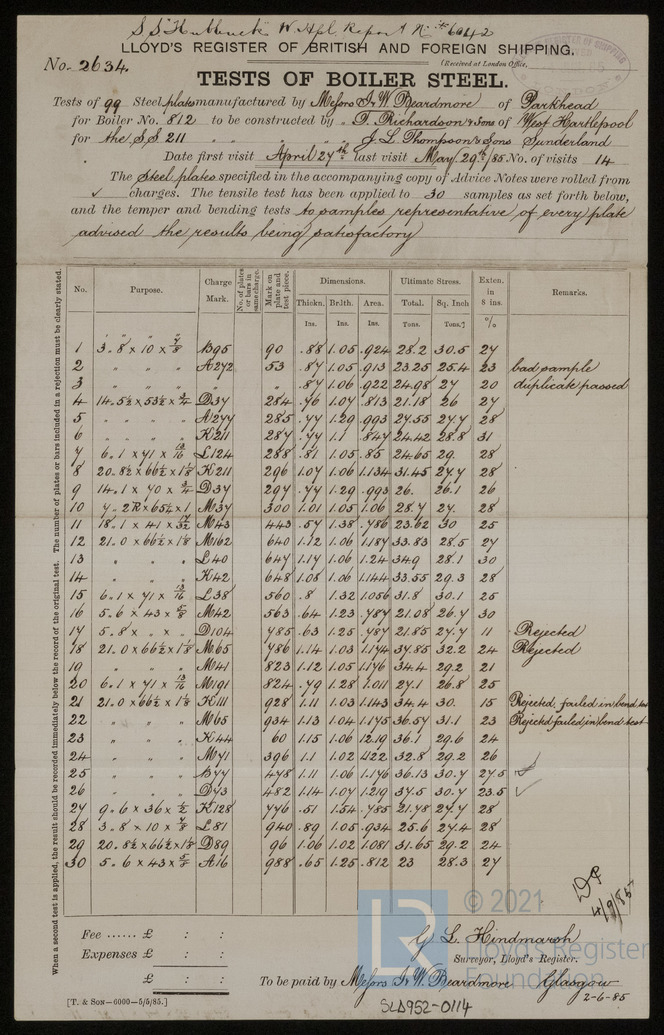 S S W Hpl. Report No. 6042
LLOYD'S REGISTER OF BRITISH AND FOREIGN SHIPPING.
No. 2634. (Received at London Office,
TESTS OF BOILER STEEL.
Tests of 99 Steel plates manufactured by Messrs I. W. Beardmore of Parkhead
for Boiler No. 812 to be constructed by T. Richardson & Sons of West Hartlepool
for the S.S 211 " " " J. L. Thompson & Sons Sunderland
Date first visit April 27th last visit May 29th/85 No. of visits 14
The Steel plates specified in the accompanying copy of Advice Notes were rolled from
✓ charges. The tensile test has been applied to 30 samples as set forth below,
and the temper and bending tests to samples representative of every plate
advised the results being satisfactory
When a second test is applied, the result should be recorded immediately below the record of the original test. The number of plates or bars included in a rejection must be clearly stated.
No. Purpose. Charge Mark. No. of plates or bars in same charge. Mark on plate and test piece. Dimensions. Ultimate Stress. Exten. in 8 ins. Remarks.
Thickn. Br.lth. Area. Total. Sq. Inch
Ins. Ins. Ins. Tons. Tons. %
1 3.8 x 10 x 7/8 B95 90 .88 1.05 .924 28.2 30.5 27
2 " " " A272 53 .87 1.05 .913 23.25 25.4 23 bad sample
3 " " " " " .87 1.06 .922 24.98 27 20 duplicate passed
4 14.5½ x 53½ x ¾ D37 284 .76 1.07 .813 21.18 26 27
5 " " " A277 285 .77 1.29 .993 27.55 27.7 28
6 " " " K211 287 .77 1.1 .847 24.42 28.8 31
7 6.1 x 71 x 13/16 L124 288 .81 1.05 .85 24.65 29. 28
8 20.8½ x 66½ x 1⅛ K211 296 1.07 1.06 1.134 31.45 27.7 28
9 14.1 x 70 x ¾ D37 297 .77 1.29 .993 26. 26.1 26
10 7.2R x 65½ x 1 M37 300 1.01 1.05 1.06 28.7 27. 28
11 18.1 x 41 x 17/32 M43 443 .57 1.38 .786 23.62 30 25
12 21.0 x 66½ x 1⅛ M162 640 1.12 1.06 1.187 33.83 28.5 27
13 " " " L40 647 1.17 1.06 1.24 34.9 28.1 30
14 " " " K42 648 1.08 1.06 1.144 33.55 29.3 28
15 6.1 x 71 x 13/16 L38 560 .8 1.32 1.056 31.8 30.1 25
16 5.6 x 43 x ⅝ M42 563 .64 1.23 .787 21.08 26.7 30
17 5.8 x " x " D104 785 .63 1.25 .787 21.85 27.7 11 Rejected
18 21.0 x 66½ x 1⅛ M65 786 1.14 1.03 1.174 37.85 32.2 24 Rejected
19 " " " M41 823 1.12 1.05 1.176 34.4 29.2 21
20 6.1 x 71 x 13/16 M191 824 .79 1.28 1.011 27.1 26.8 25
21 21.0 x 66½ x 1⅛ K111 928 1.11 1.03 1.143 34.4 30. 15 Rejected, failed in bend test
22 " " " M65 934 1.13 1.04 1.175 36.57 31.1 23 Rejected failed in bend test
23 " " " K44 60 1.15 1.06 1.219 36.1 29.6 24
24 " " " M71 396 1.1 1.02 1.122 32.8 29.2 26
25 " " " B77 478 1.11 1.06 1.176 36.13 30.7 27.5
26 " " " D73 482 1.14 1.07 1.219 37.5 30.7 23.5 ✓
27 9.6 x 36 x ½ K128 776 .51 1.54 .785 21.78 27.7 28
28 3.8 x 10 x ⅞ L81 940 .89 1.05 .934 25.6 27.4 28
29 20.8½ x 66½ x 1⅛ D89 96 1.06 1.02 1.081 31.65 29.2 24
30 5.6 x 43 x ⅝ A16 988 .65 1.25 .812 23 28.3 27
4/9/85
Fee ...... £ : :
Expenses £ : :
£ : :
G L Hindmarsh
Surveyor, Lloyd's Register.
To be paid by Messrs I. W. Beardmore Glasgow
2-6-85
[T. & SON—6000—5/5/85.]
SLD952-0114
LR © 2021
Lloyd's Register
Foundation